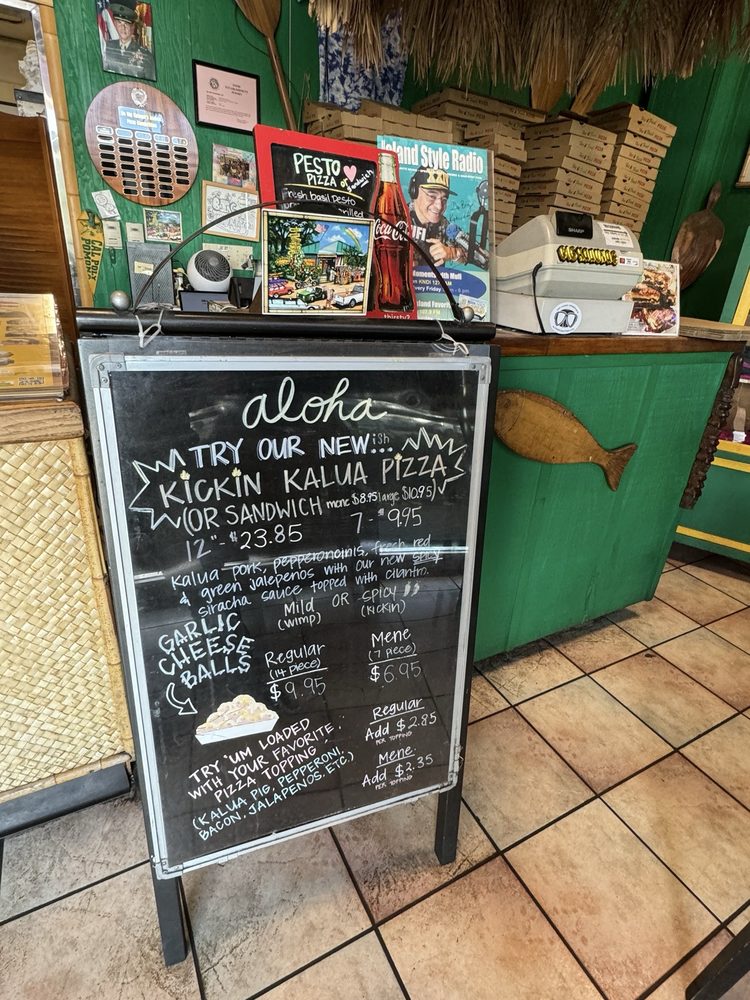 PESTO
PIZZA or sandwich
Fresh basil pesto
grilled
Coca-Cola
thirsty?
Island Style Radio
Moments with Mufi
Every Friday
SHARP
aloha
TRY OUR NEWish...
KICKIN KALUA PIZZA
(OR SANDWICH mene $8.95 large $10.95)
12"- $23.85 7- $9.95
Kalua pork, pepperoncinis, fresh red
& green jalepeños with our new spicy
siracha sauce topped with cilantro.
Mild OR SPICY
(Wimp) (Kickin)
GARLIC
CHEESE
BALLS
Regular
(14 piece)
$9.95
Mene
(7 piece)
$6.95
TRY 'UM LOADED
WITH YOUR FAVORITE
PIZZA TOPPING
(KALUA PIG, PEPPERONI,
BACON, JALAPENOS, ETC.)
Regular
Add $2.85
PER TOPPING
Mene
Add $2.35
PER TOPPING